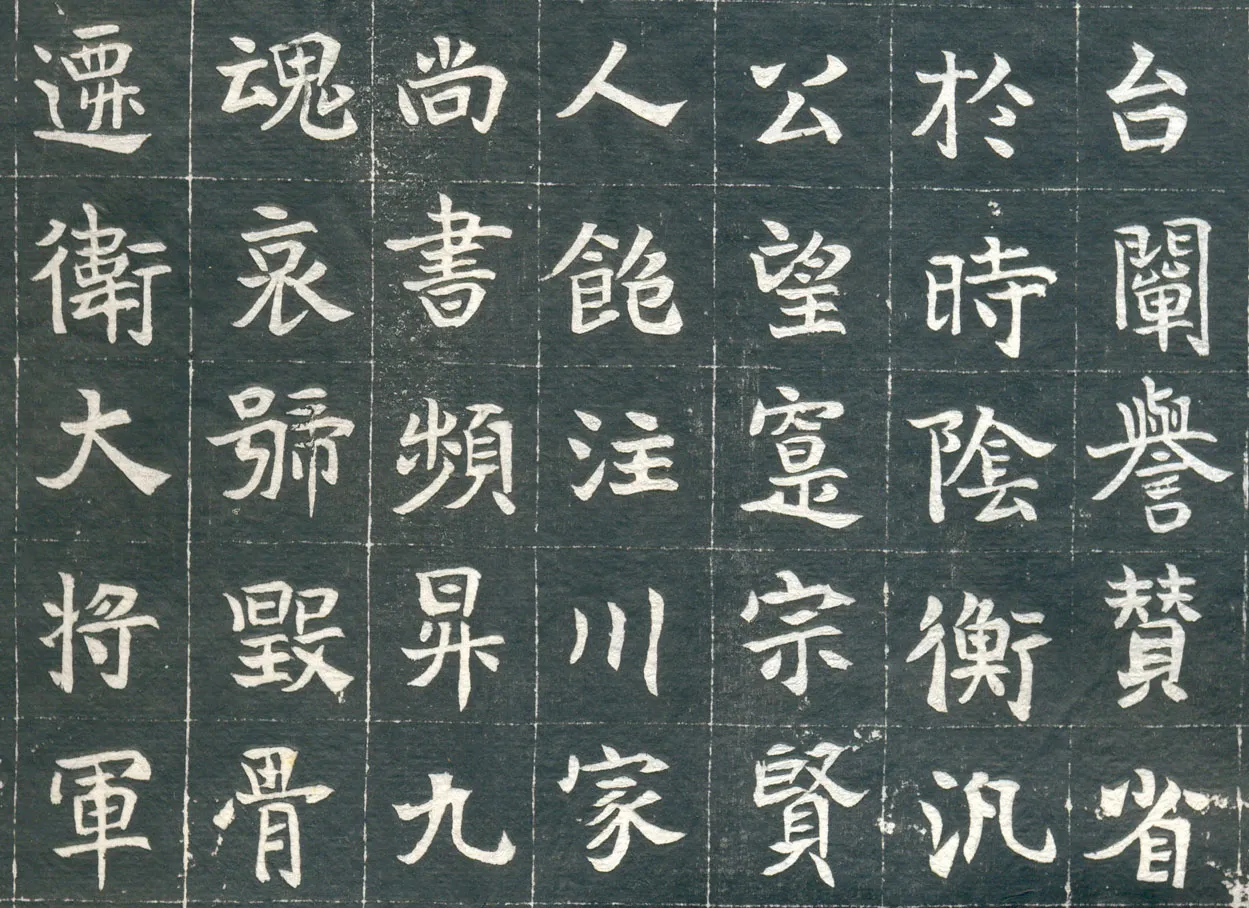 台闡譽贊省
於時陰衡汎
公望寔宗賢
人飽注川家
尚書頻昇九
魂哀號毀骨
遷衛大將軍